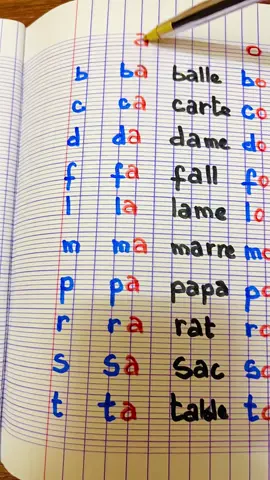 a o
b ba balle bo
c ca carte co
d da dame do
f fa fall fo
l la lame lo
m ma marre mo
p pa papa po
r ra rat ro
s sa sac so
t ta table to